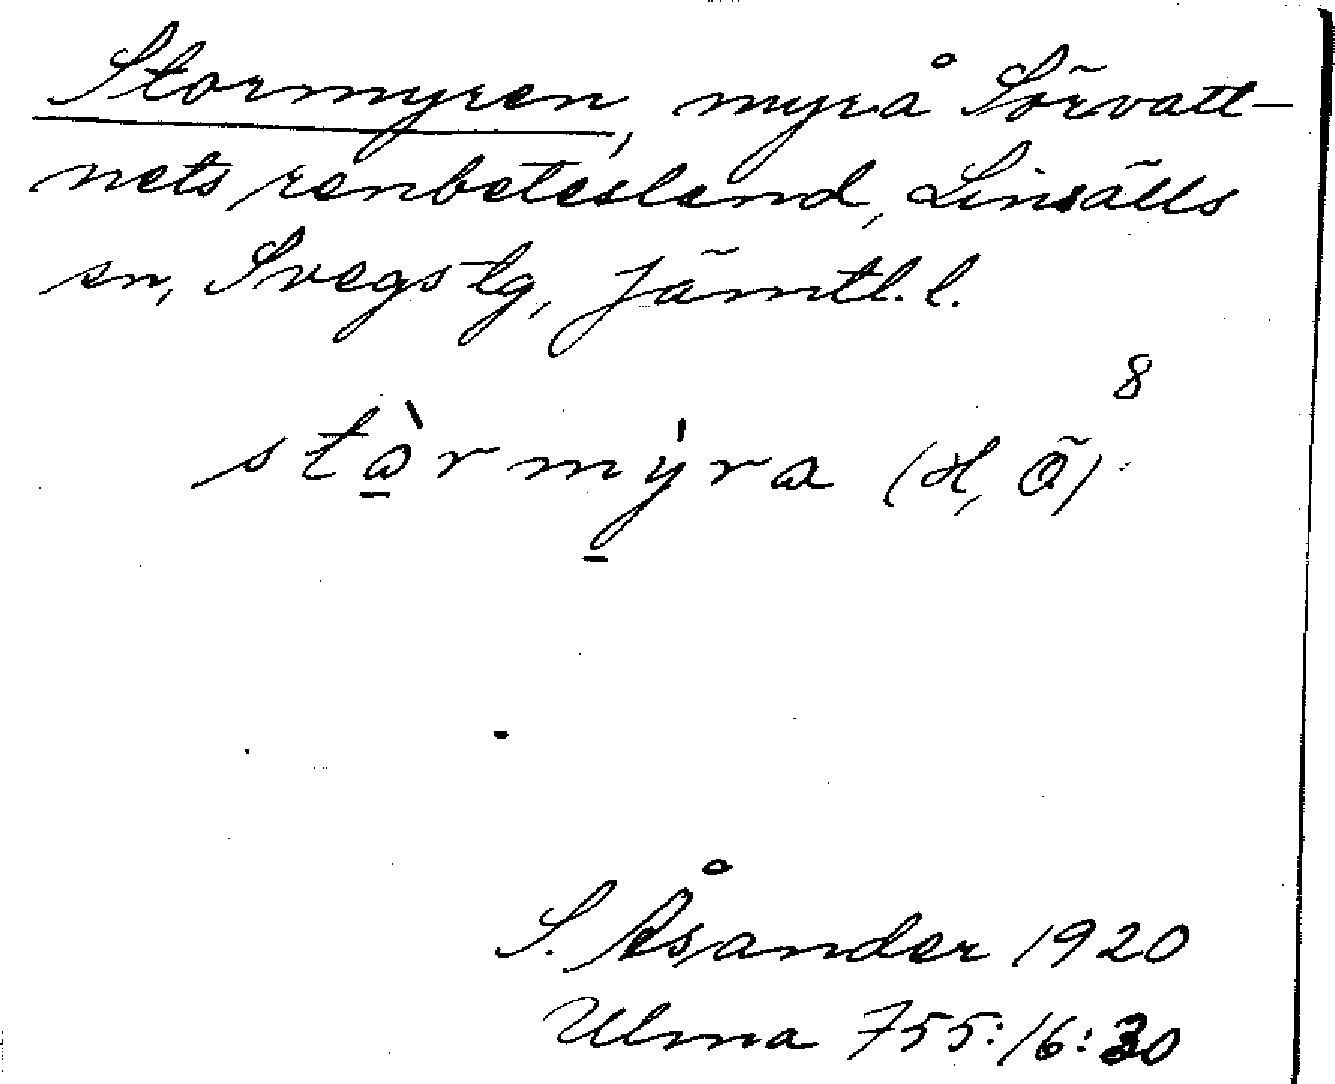 Stormyren, myr å Sörvatt-
nets renbetesland, Linsälls
sn, Svegs tg, Jämtl. l.
8
stò̱rmý̱ra (H, Ö)
S. Åsander 1920
Ulma 755:16:30